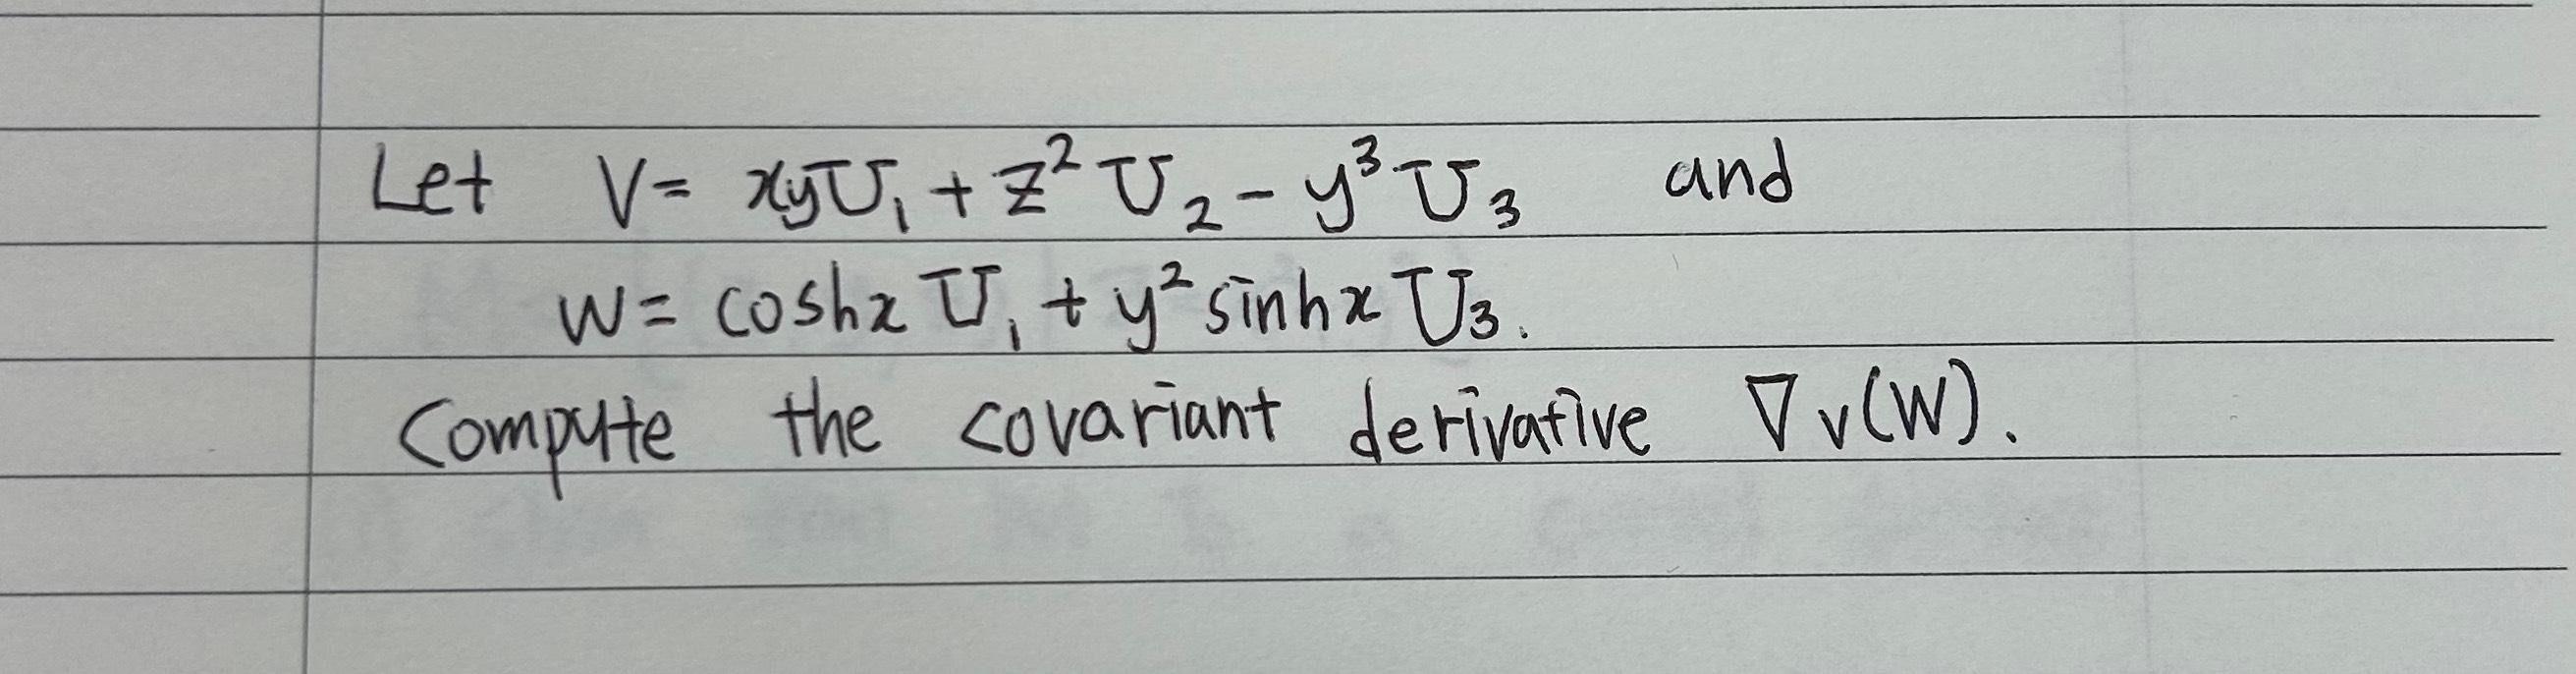 Let V = xyU₁ + z² U₂ - y³ U₃ and
W = coshx U₁ + y² sinhx U₃.
Compute the covariant derivative ∇v(W).